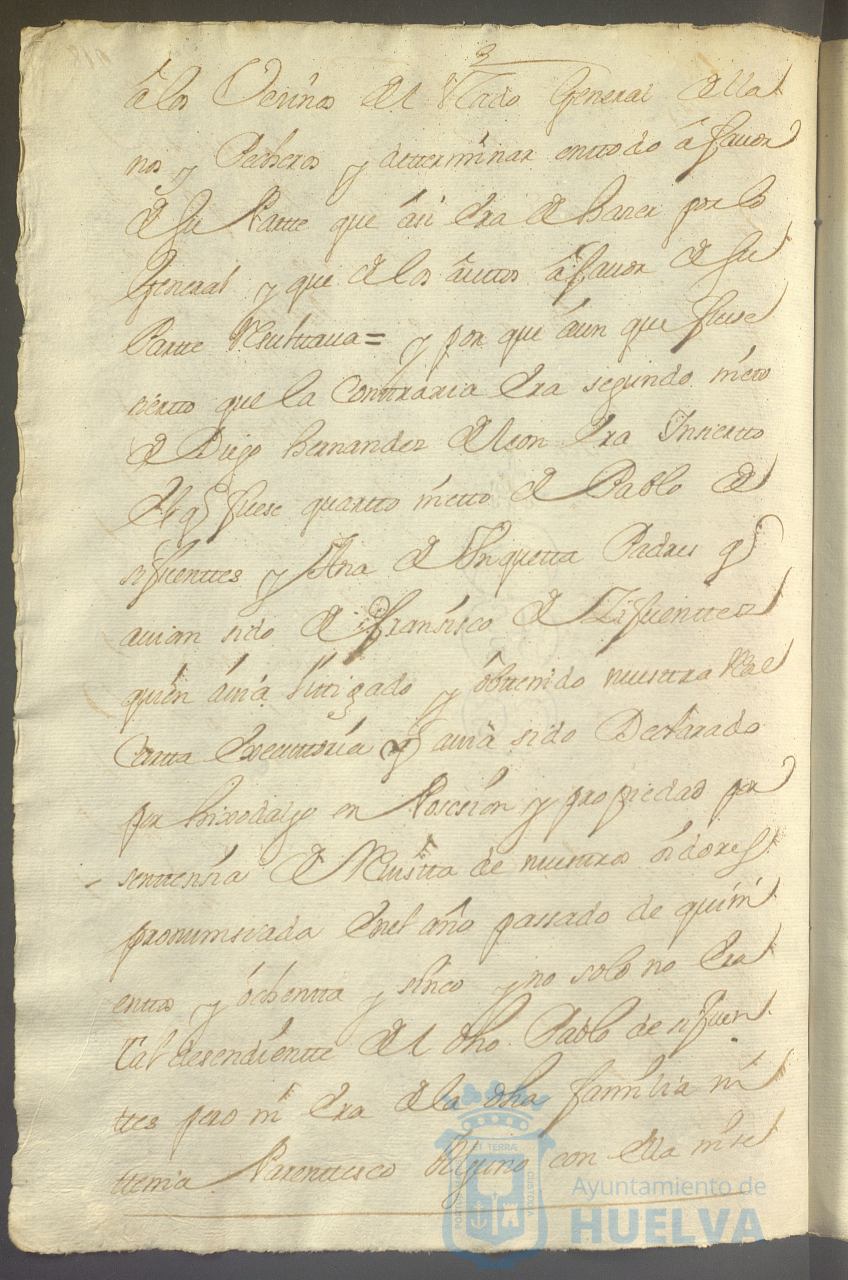 â los Vecinos del Estado General Ella
nos y Pecheros y determinar enttodo â favor
de su Partte que âsi Era de hazer por lo
General y que de los auttos âfavor de su
Partte Resulttaua = y por que âun que fuese
ciertto que la Conttraria Era segundo nietto
de Diego hernandez de leon Era Insiertto
el q fuese quartto nietto de Pablo de
sifuenttes y Ana de Padres q
auian sido de fransisco de Zifuenttes
quien âuia littigado y obttenido nuesttra Real
Cartta Executtoria y auia sido Declarado
por hixodalgo en Posesion y propiedad por
senttensia de Reuistta de nuesttros oidores
pronunsiada Enel año passado de quini
enttos y ôchentta y sinco y no solo no Era
tal desendientte del dho Pablo de sifuen
ttes pero ni Era de la dha familia ni
ttenia Parenttesco Alguno con Ella ni se
Ayuntamiento de
HUELVA